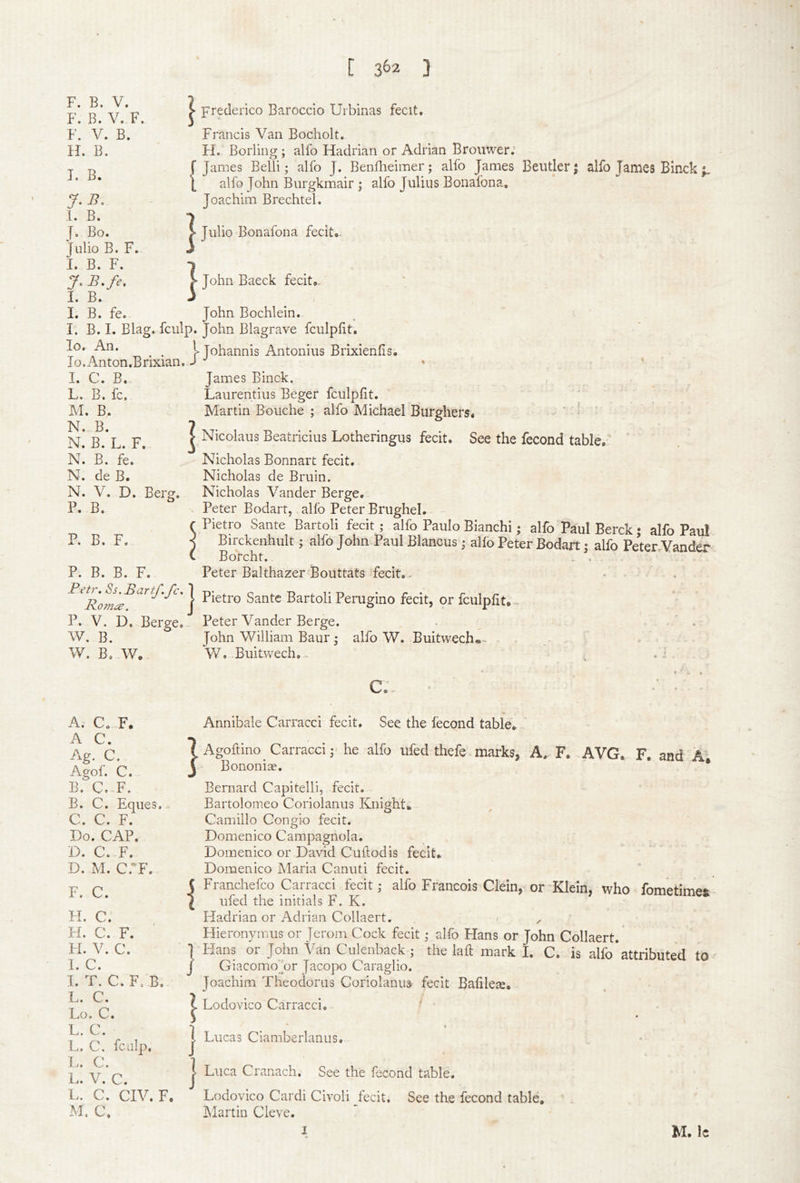 [ 362 ]
F. B. V.
F. B. V. F. } Frederico Baroccio Urbinas fecit.
F. V. B. Francis Van Bocholt.
H. B. H. Borling; alſo Hadrian or Adrian Brouwer.
I. B. { James Belli; alſo J. Benſheimer; alſo James Beutler; alſo James Binck;
alſo John Burgkmair; alſo Julius Bonaſona.
J. B. Joachim Brechtel.
I. B.
J. Bo. } Julio Bonaſona fecit.
Julio B. F.
I. B. F.
J. B. fe. } John Baeck fecit.
I. B.
I. B. fe. John Bochlein.
I. B. I. Blag. ſculp. John Blagrave ſculpſit.
Io. An. } Johannis Antonius Brixienſis.
Io. Anton. Brixian.
I. C. B. James Binck.
L. B. ſc. Laurentius Beger ſculpſit.
M. B. Martin Bouche ; alſo Michael Burghers.
N. B.
N. B. L. F. } Nicolaus Beatricius Lotheringus fecit. See the ſecond table.
N. B. fe. Nicholas Bonnart fecit.
N. de B. Nicholas de Bruin.
N. V. D. Berg. Nicholas Vander Berge.
P. B. Peter Bodart, alſo Peter Brughel.
P. B. F. { Pietro Sante Bartoli fecit ; alſo Paulo Bianchi ; alſo Paul Berck ; alſo Paul
Birckenhult ; alſo John Paul Blancus ; alſo Peter Bodart ; alſo Peter Vander
Borcht.
P. B. B. F. Peter Balthazer Bouttats fecit.
Petr. Ss. Bartſ. ſc.
Romæ. } Pietro Sante Bartoli Perugino fecit, or ſculpſit.
P. V. D. Berge. Peter Vander Berge.
W. B. John William Baur ; alſo W. Buitwech.
W. B. W. W. Buitwech.
C.
A. C. F. Annibale Carracci fecit. See the ſecond table.
A C.
Ag. C. } Agoſtino Carracci ; he alſo uſed theſe marks, A. F. AVG. F. and A.
Agoſ. C. Bononiæ.
B. C. F. Bernard Capitelli, fecit.
B. C. Eques. Bartolomeo Coriolanus Knight.
C. C. F. Camillo Congio fecit.
Do. CAP. Domenico Campagnola.
D. C. F. Domenico or David Cuſtodis fecit.
D. M. C. F. Domenico Maria Canuti fecit.
F. C. { Francheſco Carracci fecit ; alſo Francois Clein, or Klein, who ſometimes
uſed the initials F. K.
H. C. Hadrian or Adrian Collaert.
H. C. F. Hieronymus or Jerom Cock fecit ; alſo Hans or John Collaert.
H. V. C. } Hans or John Van Culenback ; the laſt mark I. C. is alſo attributed to
I. C. Giacomo or Jacopo Caraglio.
I. T. C. F. B. Joachim Theodorus Coriolanus fecit Baſileæ.
L. C.
Lo. C. } Lodovico Carracci.
L. C.
L. C. ſculp. } Lucas Ciamberlanus.
L. C.
L. V. C. } Luca Cranach. See the ſecond table.
L. C. CIV. F. Lodovico Cardi Civoli fecit. See the ſecond table.
M. C. Martin Cleve.
1 M. le